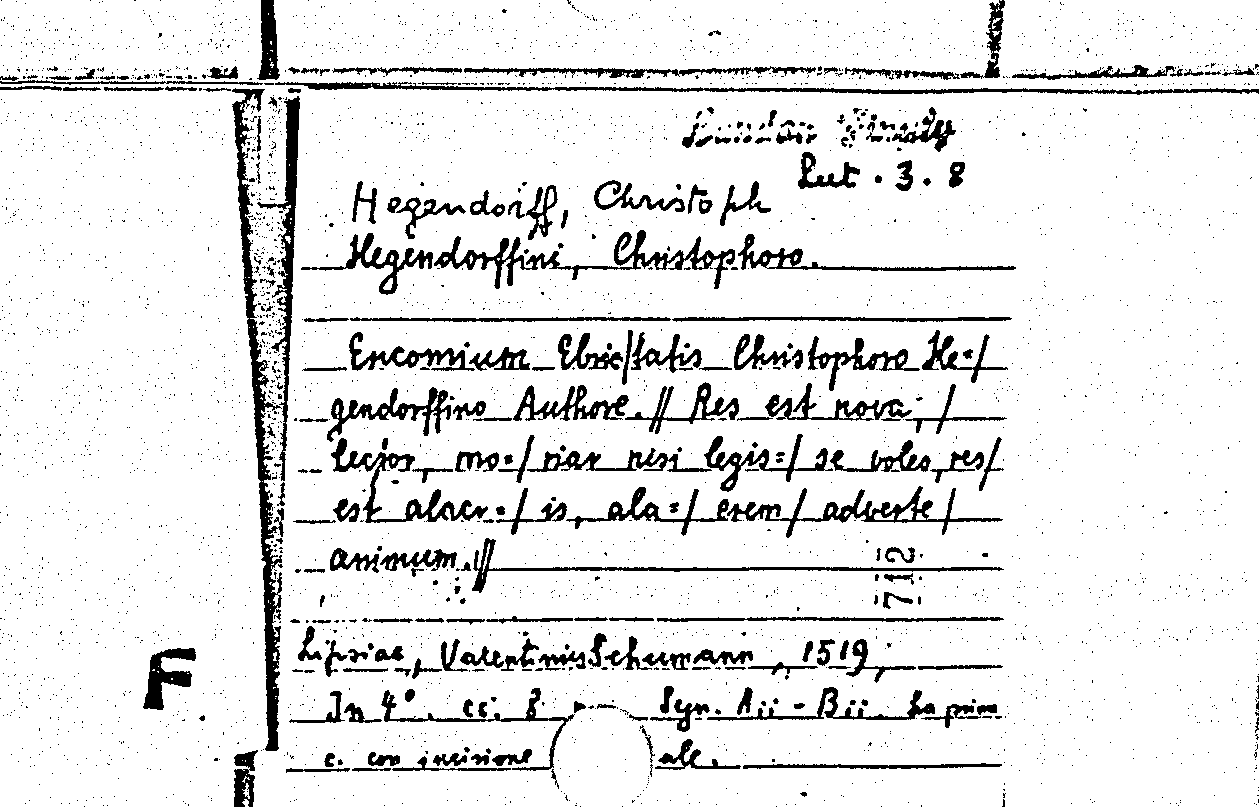 Lut. 3. 8
Hegendorff, Christoph
Hegendorffini, Christophoro.
Encomium Ebrie/tatis Christophoro He=/
gendorffino Authore. // Res est nova, /
lector, mo=/ riar nisi legis=/ se voles, res/
est alacr=/ is, ala=/ crem/ adverte/
animum. //
712
Lipsiae, Valentinus Schumann, 1519,
F
In 4°. cc. 8 Segn. Aii - Bii. La prima
c. con incisione ale.